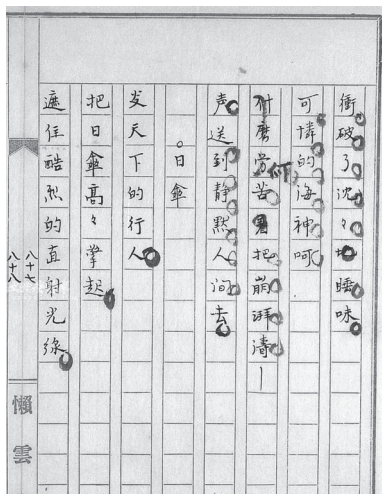 衝破了沈々地睡味
可憐的海神呵
什麼劳苦把崩湃濤—
何
声送到静默人间去
。日傘
炎天下的行人
把日傘高々掌起
遮住酷烈的直射光線
八十七
八十八
懶雲